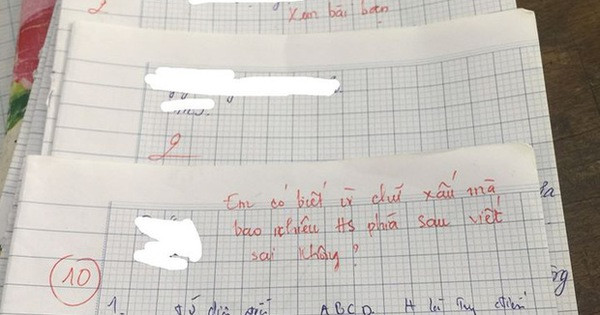 2
Xem bài bạn
2
Em có biết vì chữ xấu mà
bao nhiêu HS phía sau viết
sai không?
10
1.
ABCD. H là